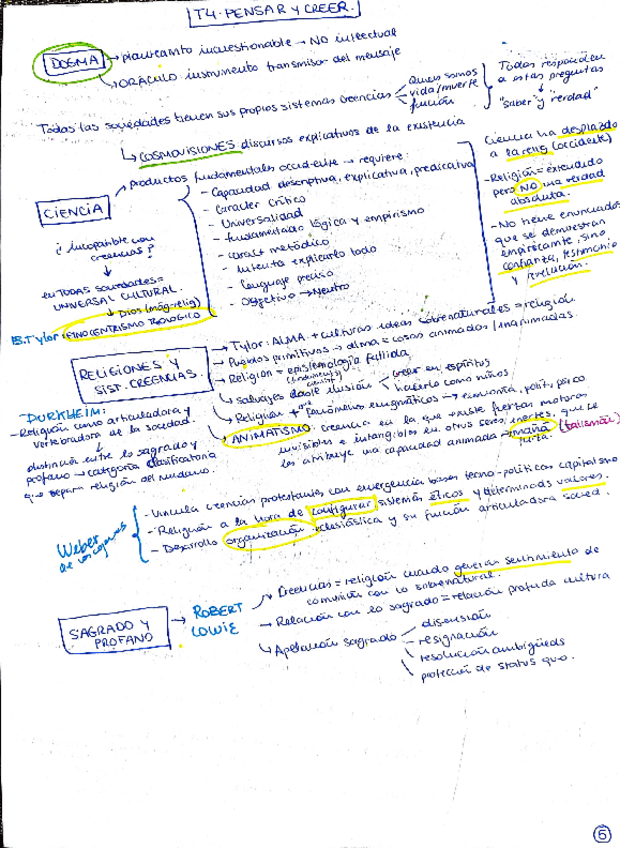 T4. PENSAR Y CREER.
DOGMA → planteamto incuestionable → NO intelectual
↳ ORÁCULO: instrumento transmisor del mensaje
Todas las sociedades tienen sus propios sistemas creencias
Quien somos
vida/muerte
función
Todas responden
a estas preguntas
↓
"saber" y "verdad"
↳ COSMOVISIONES: discursos explicativos de la existencia
CIENCIA
→ productos fundamentales occid-ente → requiere:
- Capacidad descriptiva, explicativa, predicativa
- Carácter crítico
- Universalidad
- fundamentado lógica y empirismo
- caract metódico
- Intenta explicarlo todo
- Lenguaje preciso
- Objetivo → Neutro
Ciencia ha desplazado
a la relig (occidente)
- Religión =
pero NO una verdad
absoluta.
- No tiene enunciados
que se demuestran
empíricamente, sino
confianza, testimonio
y revelación.
¿Incompatible con
creencias?
↓
en TODAS sociedades =
UNIVERSAL CULTURAL.
↳ Dios (mág-relig)
B. Tylor: ETNOCENTRISMO TEOLÓGICO
RELIGIONES Y
SIST. CREENCIAS.
→ Tylor: ALMA + culturas ideas sobrenaturales = religión.
→ Pueblos primitivos → alma = cosas animadas / inanimadas.
→ Religión = epistemología fallida
↳ salvajes desde ilusión
creer en espíritus
hacerlo como niños
↳ Religión + que fenómenos enigmáticos → economía, polít, psico
→ ANIMATISMO: creencia en la que existe fuerzas motoras
invisibles e intangibles en otros seres, inertes, que se
les atribuye una capacidad animada → maná (talismán)
DURKHEIM:
- Religión como articuladora y
vertebradora de la sociedad.
↓
distinción entre lo sagrado y
profano → categoría clasificatoria
que separa religión del mundano.
Weber
- Vincula creencias protestantes con emergencia bases tecno-políticas capitalismo
- Religión a la hora de configurar sistemas éticos y determinads valores.
- Desarrollo organización eclesiástica y su función articuladora socied.
SAGRADO Y
PROFANO
→ ROBERT
LOWIE
→ Creencias = religión cuando generan sentimiento de
comunión con lo sobrenatural.
→ Relación con lo sagrado = relación profunda cultura
↳ Apelación sagrado
disensión
resignación
resolución ambigüeds
protección de status quo.
5